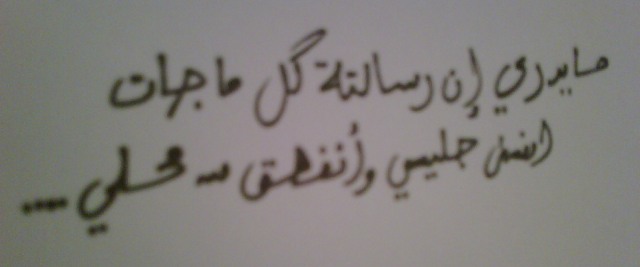 مايدري إن رسالتة كل ما جات
جليسي وأنفهق محلي ....